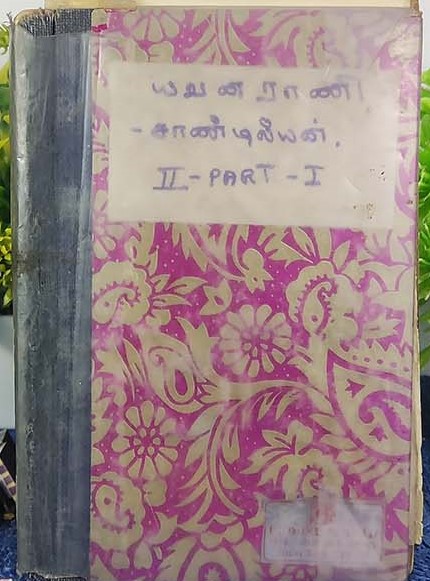 யவன ராணி
- சாண்டில்யன்.
II - PART - I